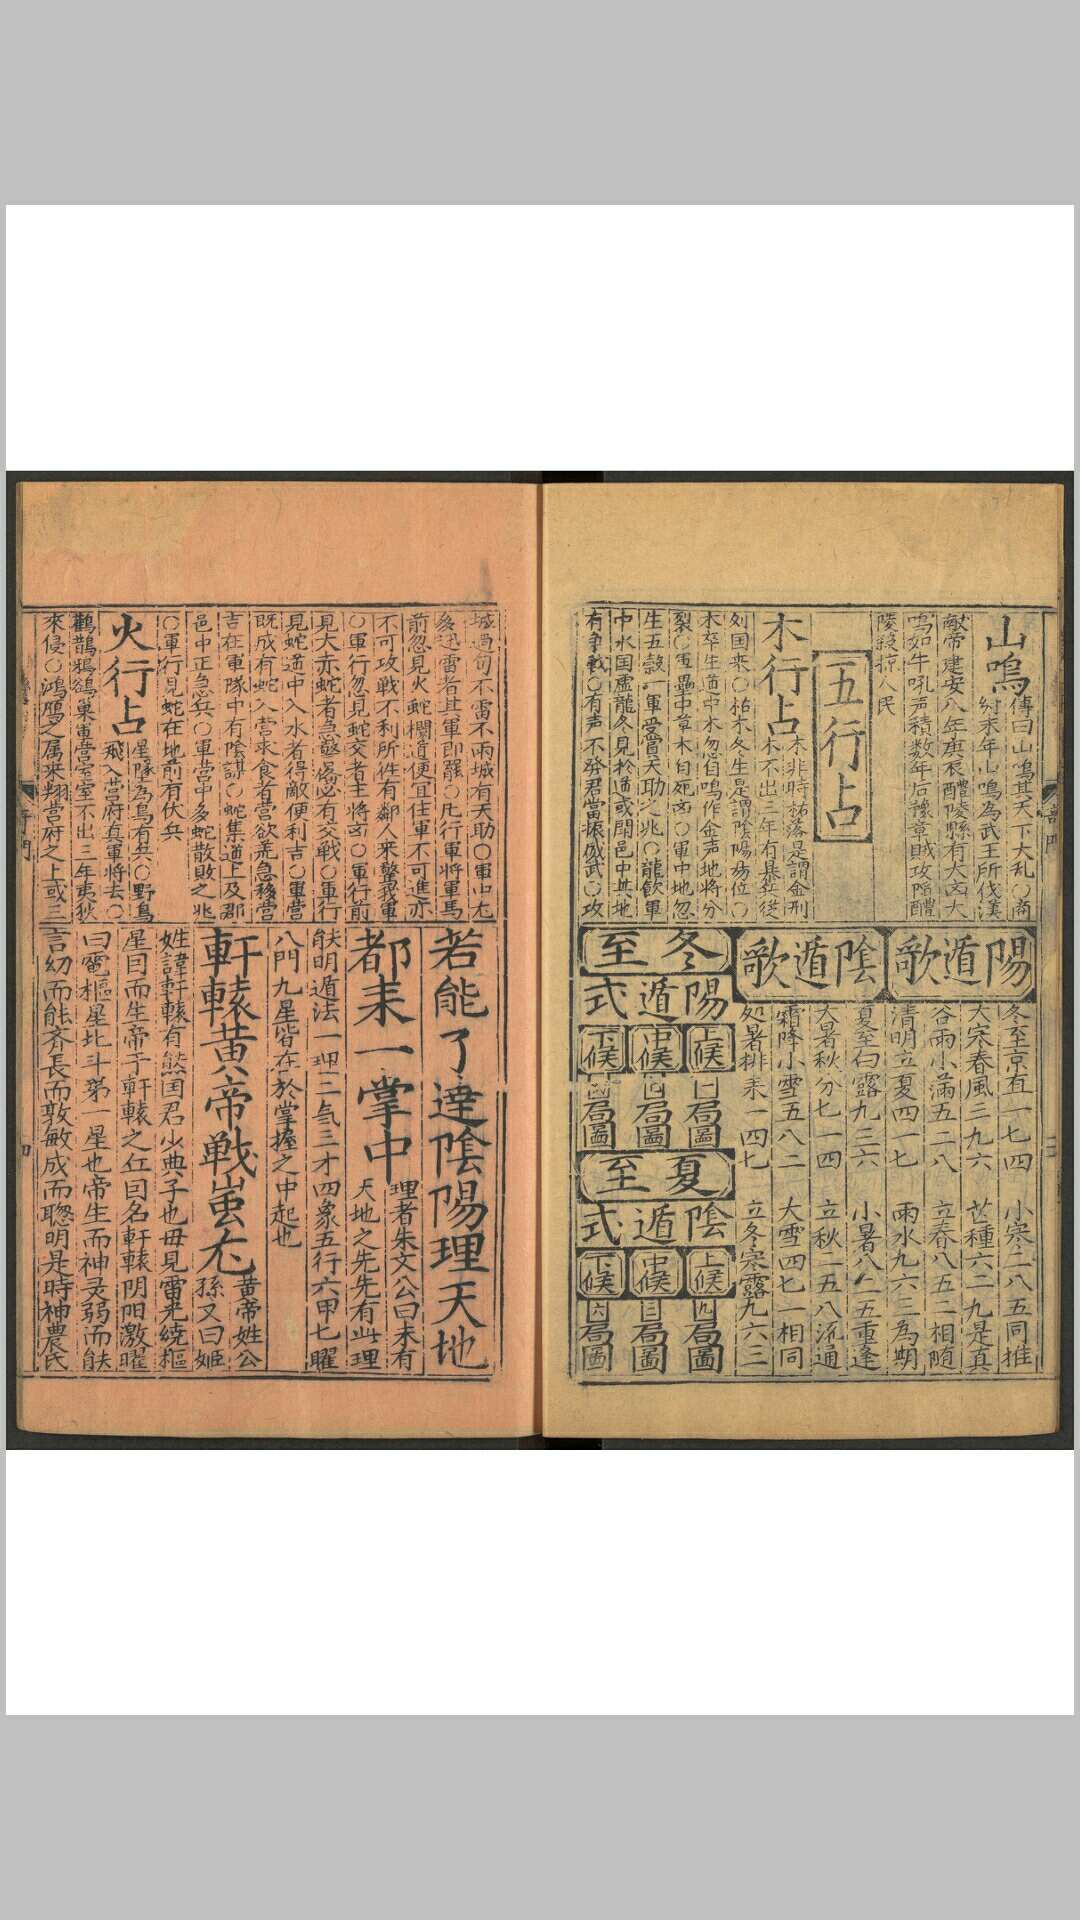 山鳴
傳曰山鳴其天下大乱〇商
紂末年山鳴為武王所伐漢
獻帝建安八年庚辰醴陵縣有大山大
鳴如牛吼声積数年后豫章賊攻陷醴
陵殺掠人民
五行占
木行占
木非時枯落是謂金刑
木不出三年有暴兵從
列国来〇枯木冬生是謂陰陽易位〇
木卒生道中木忽自鳴作金声地將分
裂〇軍壘中草木自死凶〇軍中地忽
生五穀一軍受賞天助之兆〇龍飲軍
中水国虚龍冬見於道或閗邑中其地
有争戰〇有声不發君當振威武〇攻
陽遁歌
冬至京直一七四 小寒二八五同推
大寒春風三九六 芒種六二九是真
谷雨小滿五二八 立春八五二相随
清明立夏四一七 雨水九六三為期
陰遁歌
夏至白露九三六 小暑八二五重逢
大暑秋分七一四 立秋二五八流通
霜降小雪五八二 大雪四七一相同
処暑排来一四七 立冬寒露九六三
冬至
陽遁式
上候
中候
下候
一局圖
局圖
四局圖
夏至
陰遁式
上候
中候
下候
九局圖
三局圖
六局圖
城過旬不雷不雨城有天助〇軍出尤
多迅雷者其軍即罷〇凡行軍將軍馬
前忽見火蛇攔道便宜住軍不可進亦
不可攻戰不利所往有鄰人来驚我軍
〇軍行忽見蛇交者主將凶〇軍行前
見大赤蛇者急警俻必有交戰〇軍行
見蛇道中入水者得敵便利吉〇軍營
既成有蛇入營求食者營欲荒急移營
吉在軍隊中有陰謀〇蛇集道上及郡
邑中正急兵〇軍營中多蛇散敗之兆
〇軍行見蛇在地前有伏兵
火行占
星墜為鳥有兵〇野鳥
飛入營府真軍將去〇
鸛鵲鵶鷂巢軍營室不出三年夷狄
來侵〇鴻鴈之属来翔營府之上或三
若能了達陰陽理天地
都来一掌中
理者朱文公曰未有
天地之先先有此理
能明遁法一理二気三才四象五行六甲七曜
八門九星皆在於掌握之中起也
軒轅黄帝戦蚩尤
黄帝姓公
孫又曰姬
姓諱軒轅有熊国君少典子也母見雷光繞樞
星因而生帝于軒轅之丘因名軒轅阴阳激曜
曰電樞星北斗第一星也帝生而神灵弱而能
言幼而能齐長而敦敏成而聰明是時神農氏